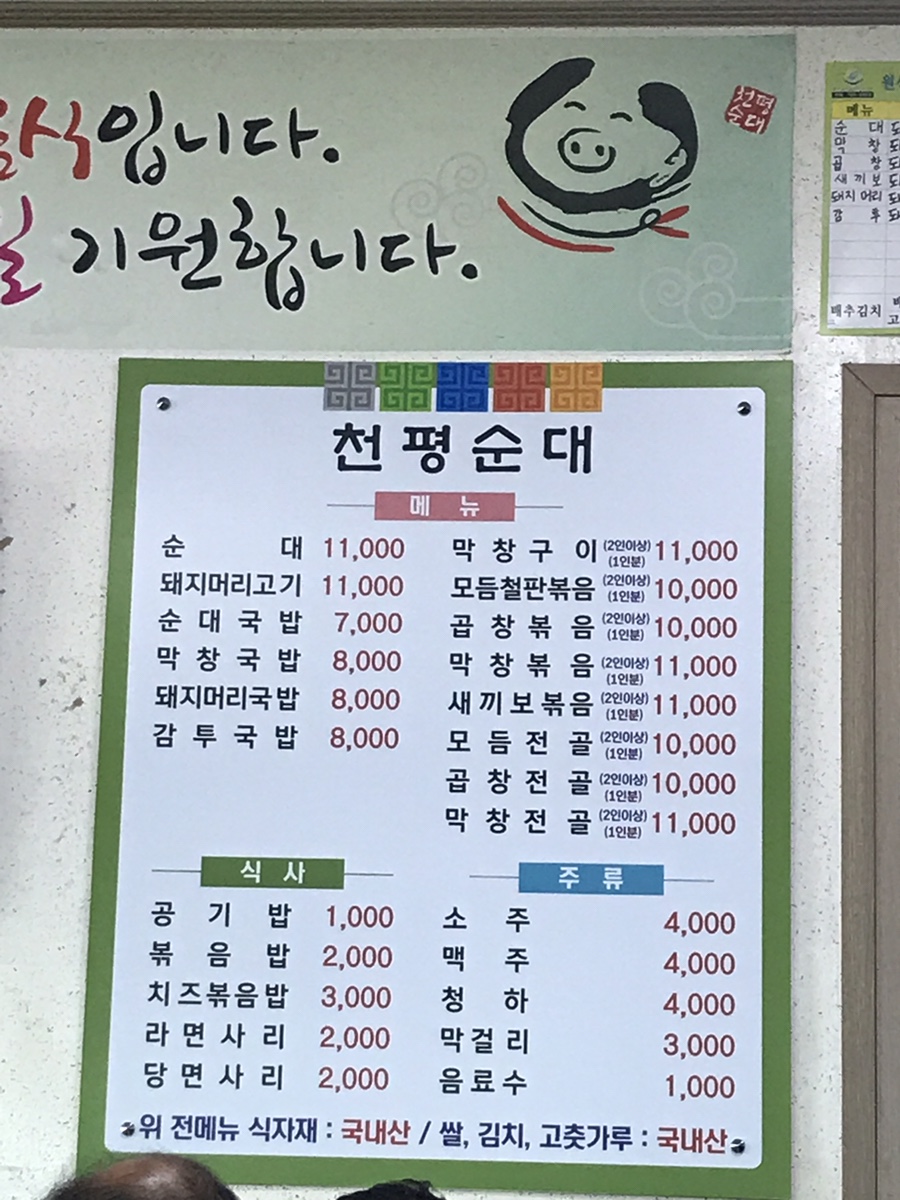 음식입니다.
기원합니다.
천평
순대
천평순대
메뉴
순대 11,000
돼지머리고기 11,000
순대국밥 7,000
막창국밥 8,000
돼지머리국밥 8,000
감투국밥 8,000
막창구이 (2인이상) (1인분) 11,000
모듬철판볶음 (2인이상) (1인분) 10,000
곱창볶음 (2인이상) (1인분) 10,000
막창볶음 (2인이상) (1인분) 11,000
새끼보볶음 (2인이상) (1인분) 11,000
모듬전골 (2인이상) (1인분) 10,000
곱창전골 (2인이상) (1인분) 10,000
막창전골 (2인이상) (1인분) 11,000
식사
공기밥 1,000
볶음밥 2,000
치즈볶음밥 3,000
라면사리 2,000
당면사리 2,000
주류
소주 4,000
맥주 4,000
청하 4,000
막걸리 3,000
음료수 1,000
위 전메뉴 식자재 : 국내산 / 쌀, 김치, 고춧가루 : 국내산
메뉴
순대
막창
곱창
새끼보
돼지머리
감투
배추김치